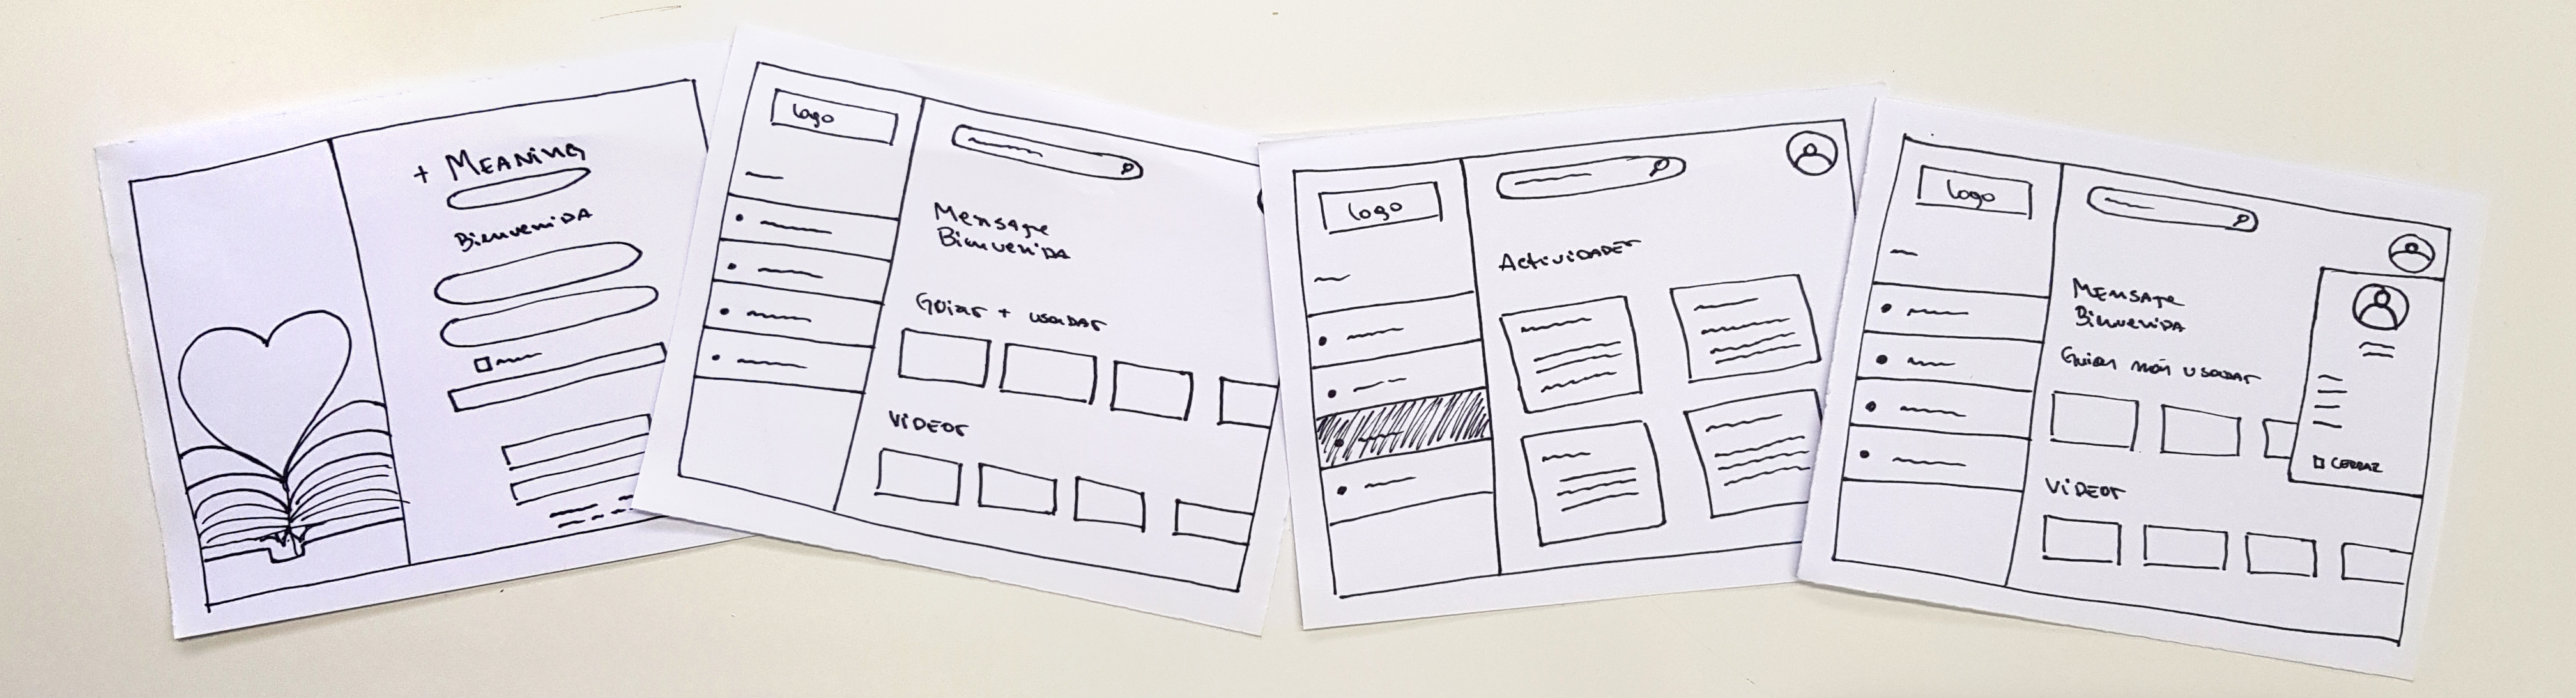 + MEANING
Bienvenida
Logo
Mensaje
Bienvenida
Guías + usadas
Videos
Logo
Actividades
Logo
Mensaje
Bienvenida
Guías más usadas
Videos
CERRAR